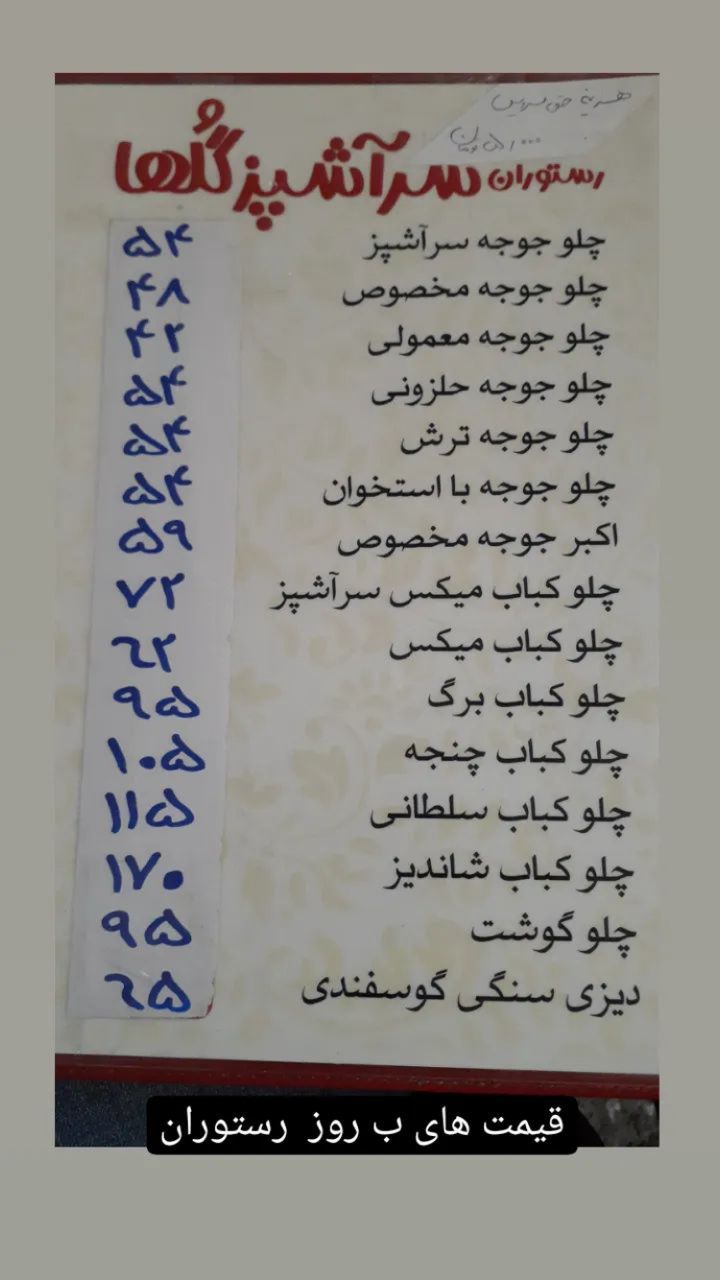 هزینه حق سرویس
۵/۰۰۰ تومان
رستوران سرآشپز گلها
چلو جوجه سرآشپز ۵۴
چلو جوجه مخصوص ۴۸
چلو جوجه معمولی ۴۲
چلو جوجه حلزونی ۵۴
چلو جوجه ترش ۵۴
چلو جوجه با استخوان ۵۴
اکبر جوجه مخصوص ۵۹
چلو کباب میکس سرآشپز ۷۲
چلو کباب میکس ۶۲
چلو کباب برگ ۹۵
چلو کباب چنجه ۱۰۵
چلو کباب سلطانی ۱۱۵
چلو کباب شاندیز ۱۷۰
چلو گوشت ۹۵
دیزی سنگی گوسفندی ۶۵
قیمت های ب روز رستوران